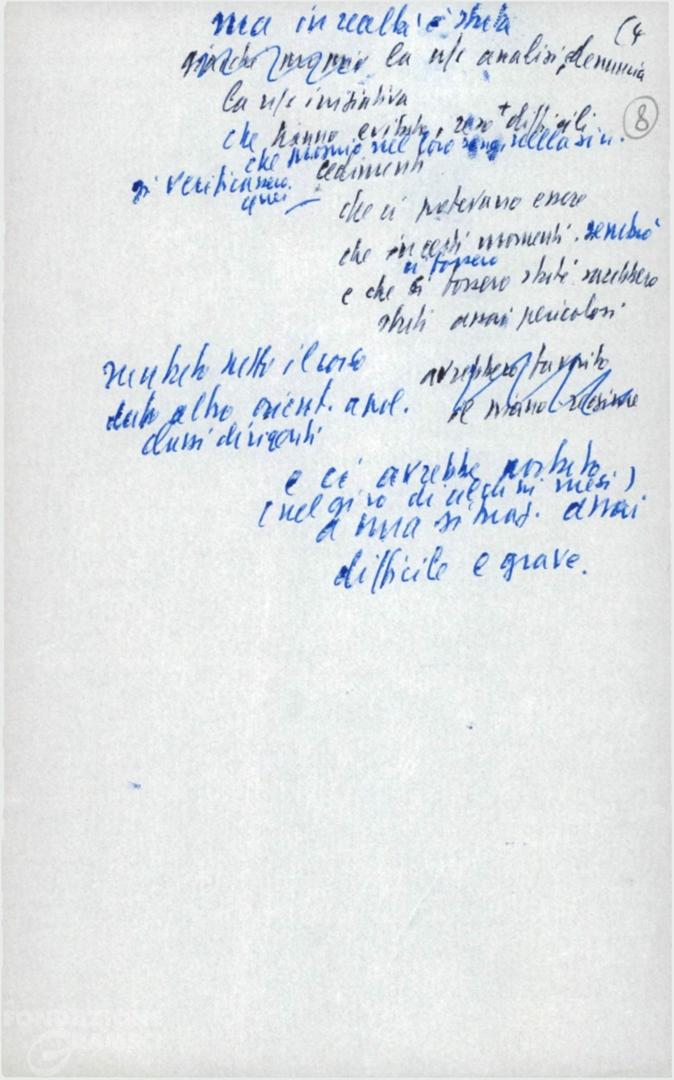 ma in realtà è stata
(4
la ns/ analisi, denuncia
la ns/ iniziativa
8
che hanno evitato, reso + difficili
che proprio nel loro della sin.
si verificassero cedimenti
quei
che ci potevano essere
che in certi momenti sembrò
ci fossero
e che se ci fossero stati sarebbero
stati assai pericolosi
mutato tutto il corso
dato altro orient. a pol.
classi dirigenti
avrebbero favorito
il piano
e ci avrebbe portato
(nel giro di alcuni mesi)
a una situaz. assai
difficile e grave.
FONDAZIONE
GRAMSCI